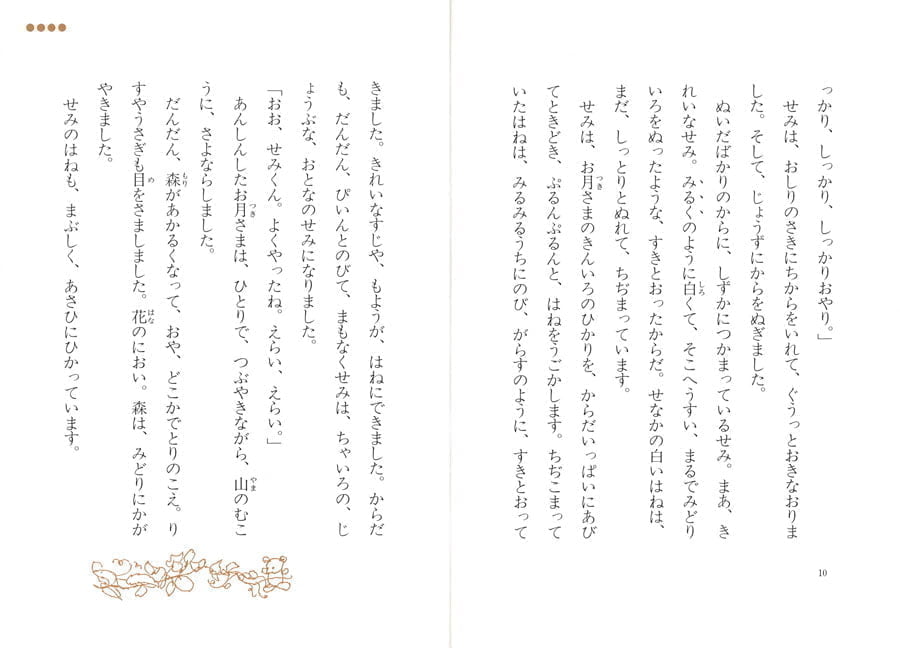 っかり、しっかり、しっかりおやり。」
せみは、おしりのさきにちからをいれて、ぐうっとおきなおりま
した。そして、じょうずにからをぬぎました。
ぬいだばかりのからに、しずかにつかまっているせみ。まあ、き
れいなせみ。みるくのように白くて、そこへうすい、まるでみどり
いろをぬったような、すきとおったからだ。せなかの白いはねは、
まだ、しっとりとぬれて、ちぢまっています。
せみは、お月さまのきんいろのひかりを、からだいっぱいにあび
てときどき、ぷるんぷるんと、はねをうごかします。ちぢこまって
いたはねは、みるみるうちにのび、がらすのように、すきとおって
10
きました。きれいなすじや、もようが、はねにできました。からだ
も、だんだん、ぴいんとのびて、まもなくせみは、ちゃいろの、じ
ょうぶな、おとなのせみになりました。
「おお、せみくん。よくやったね。えらい、えらい。」
あんしんしたお月さまは、ひとりで、つぶやきながら、山のむこ
うに、さよならしました。
だんだん、森があかるくなって、おや、どこかでとりのこえ。り
すやうさぎも目をさましました。花のにおい。森は、みどりにかが
やきました。
せみのはねも、まぶしく、あさひにひかっています。